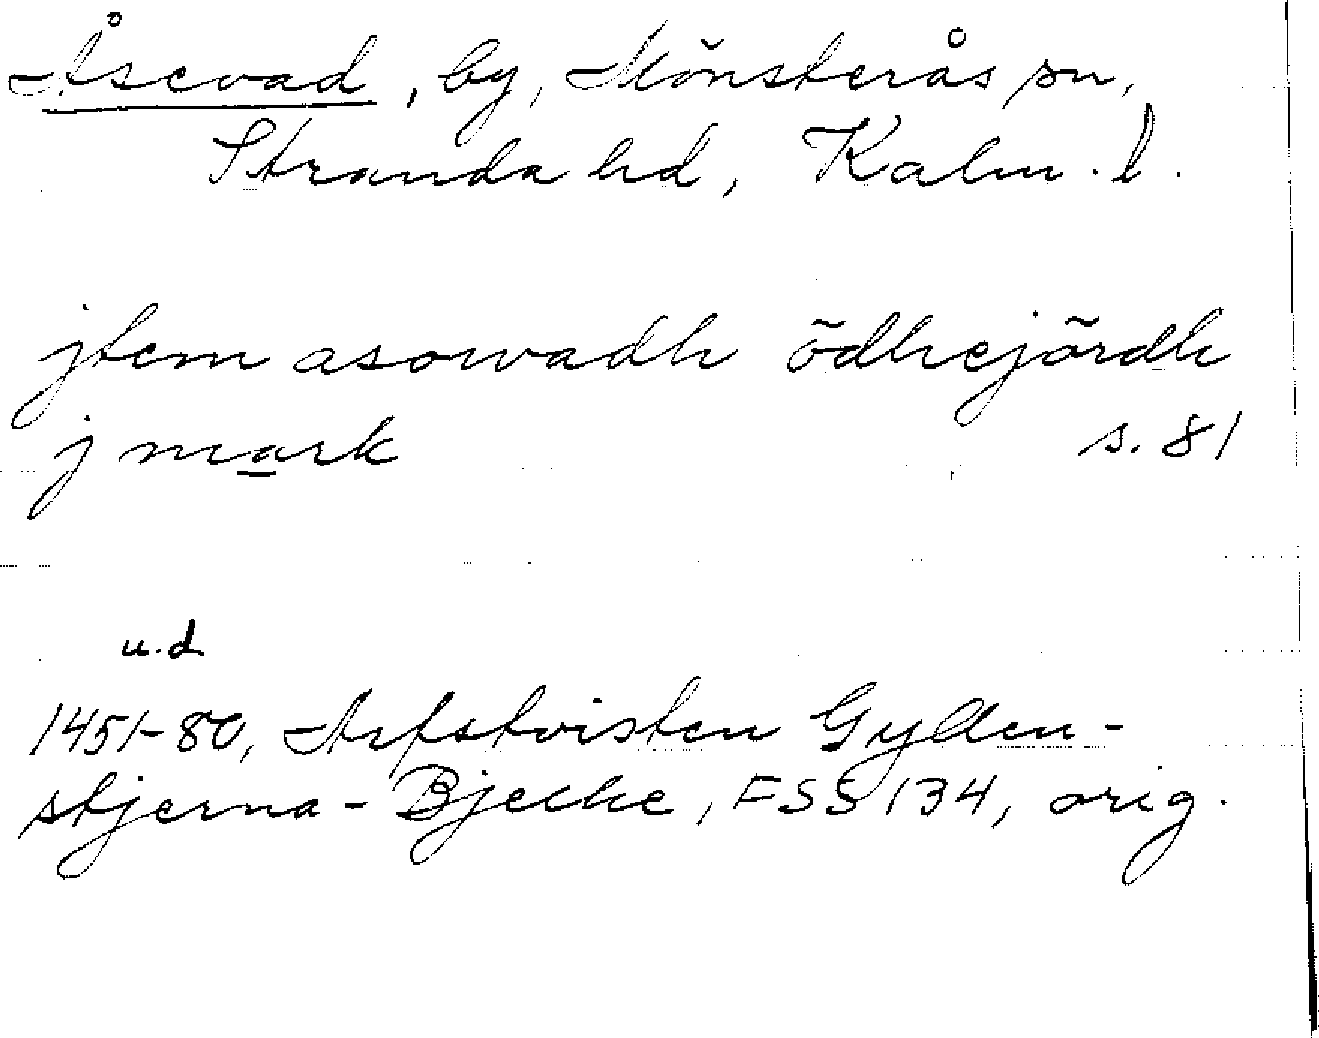 Åsevad, by, Mönsterås sn,
Stranda hd, Kalm. l.
jtem asowadh ödhejördh
j mark s. 81
u.d
1451-80, Arfstvisten Gyllen-
stjerna - Bjelke, FSS 134, orig.